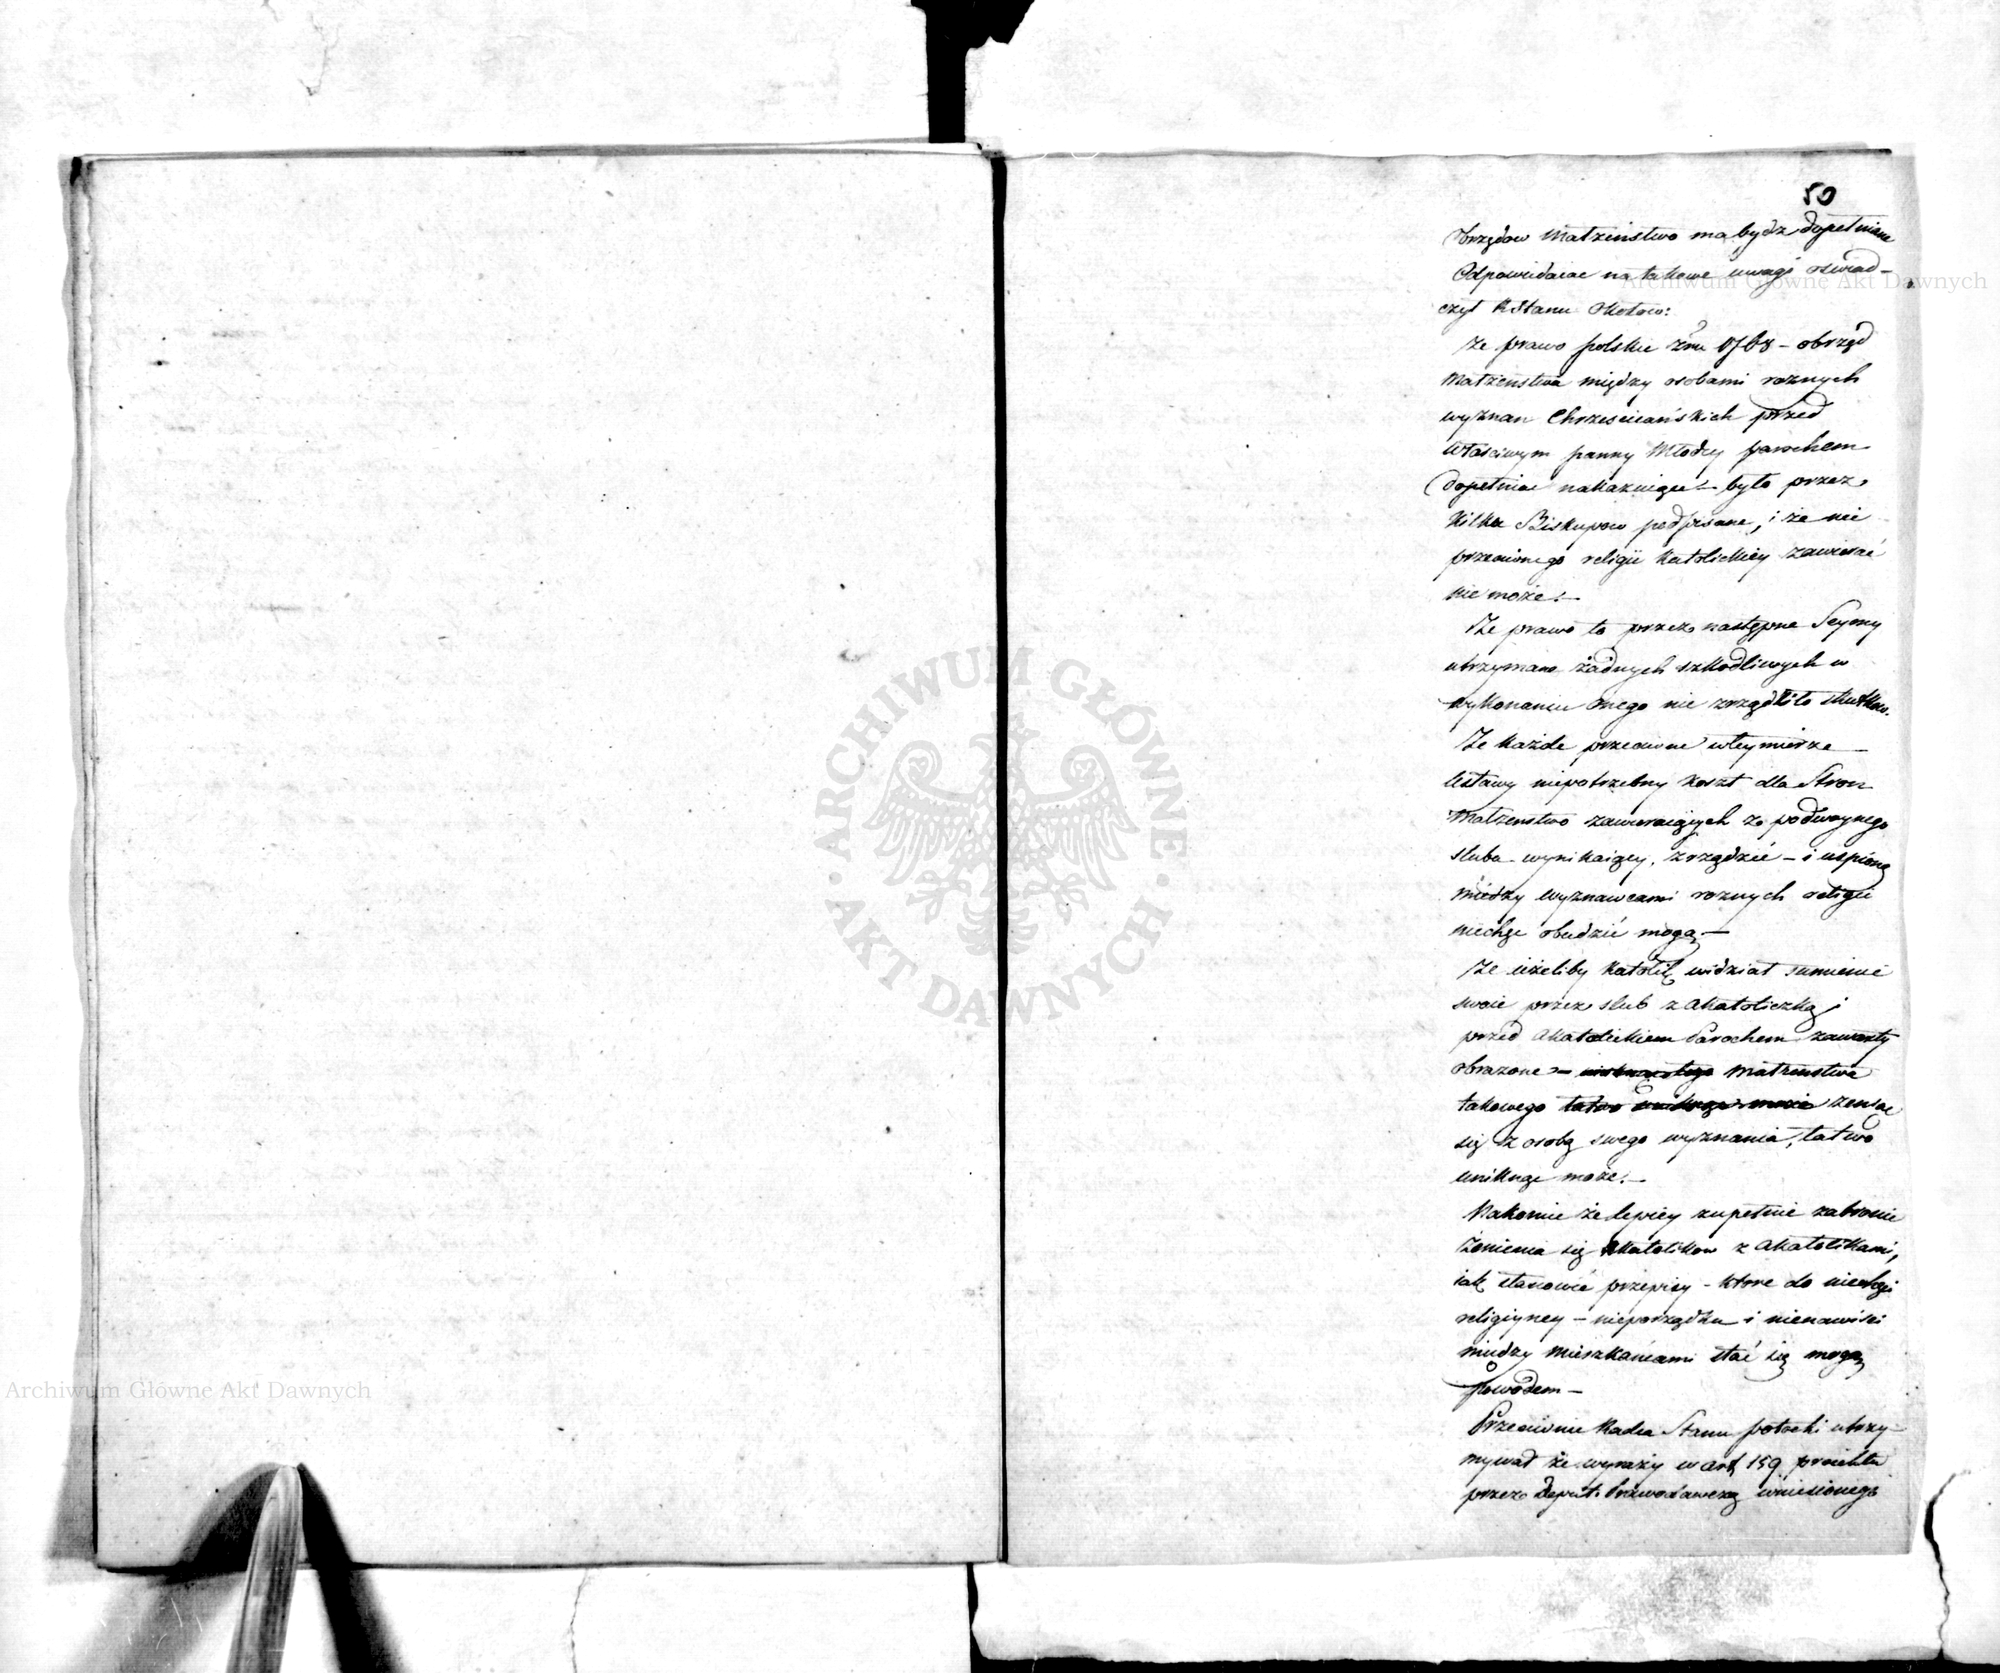 50
Obrzędow Małżeństwo ma bydz dopełniane
Odpowiadaiac na takowe uwagi oswiad-
czył R Stanu Okołow:
że prawo polskie z ru 1768 – obrząd
Małżenstwa między osobami roznych
wyznan Chrześciańskich przed
właściwym panny Młodey parochem
dopełniac nakazuiące – było przez
kilku Biskupow podpisane, i że nic
przeciwnego religii Katolickiey zawierać
nie może. –
Że prawo to przez następne Seymy
utrzymane żadnych szkodliwych w
wykonaniu onego nie zrządziło skutkow.
Że każde przeciwne w tey mierze
Ustawy niepotrzebny koszt dla Stron
Małżenstwo zawieraiących z podwoynego
slubu wynikaiący, zrządzić – i uspioną
między wyznawcami roznych religii
niechęc obudzić mogą –
Że ieżeliby Katolik widział sumienie
swoie przez slub z Akatoliczką i
przed Akatolickiem Parochem zawarty
obrażone – Małżenstwa
takowego łatwo uniknąc może żeniąc
się z osobą swego wyznania, łatwo
uniknąc może. –
Nakoniec że lepiey zupełnie zabronic
żenienia się Katolikow z Akatolikami,
iak stanowić przepisy – ktore do niechęci
religiyney – nieporządku i nienawisci
między Mieszkańcami stać się mogą
powodem –
Przeciwnie Radca Stanu Potocki utrzy-
mywał że wyrazy w art 159 proiektu
przez Deput. Prawodawczą wniesionego
Archiwum Główne Akt Dawnych
ARCHIWUM GŁÓWNE
· AKT DAWNYCH ·
Archiwum Główne Akt Dawnych